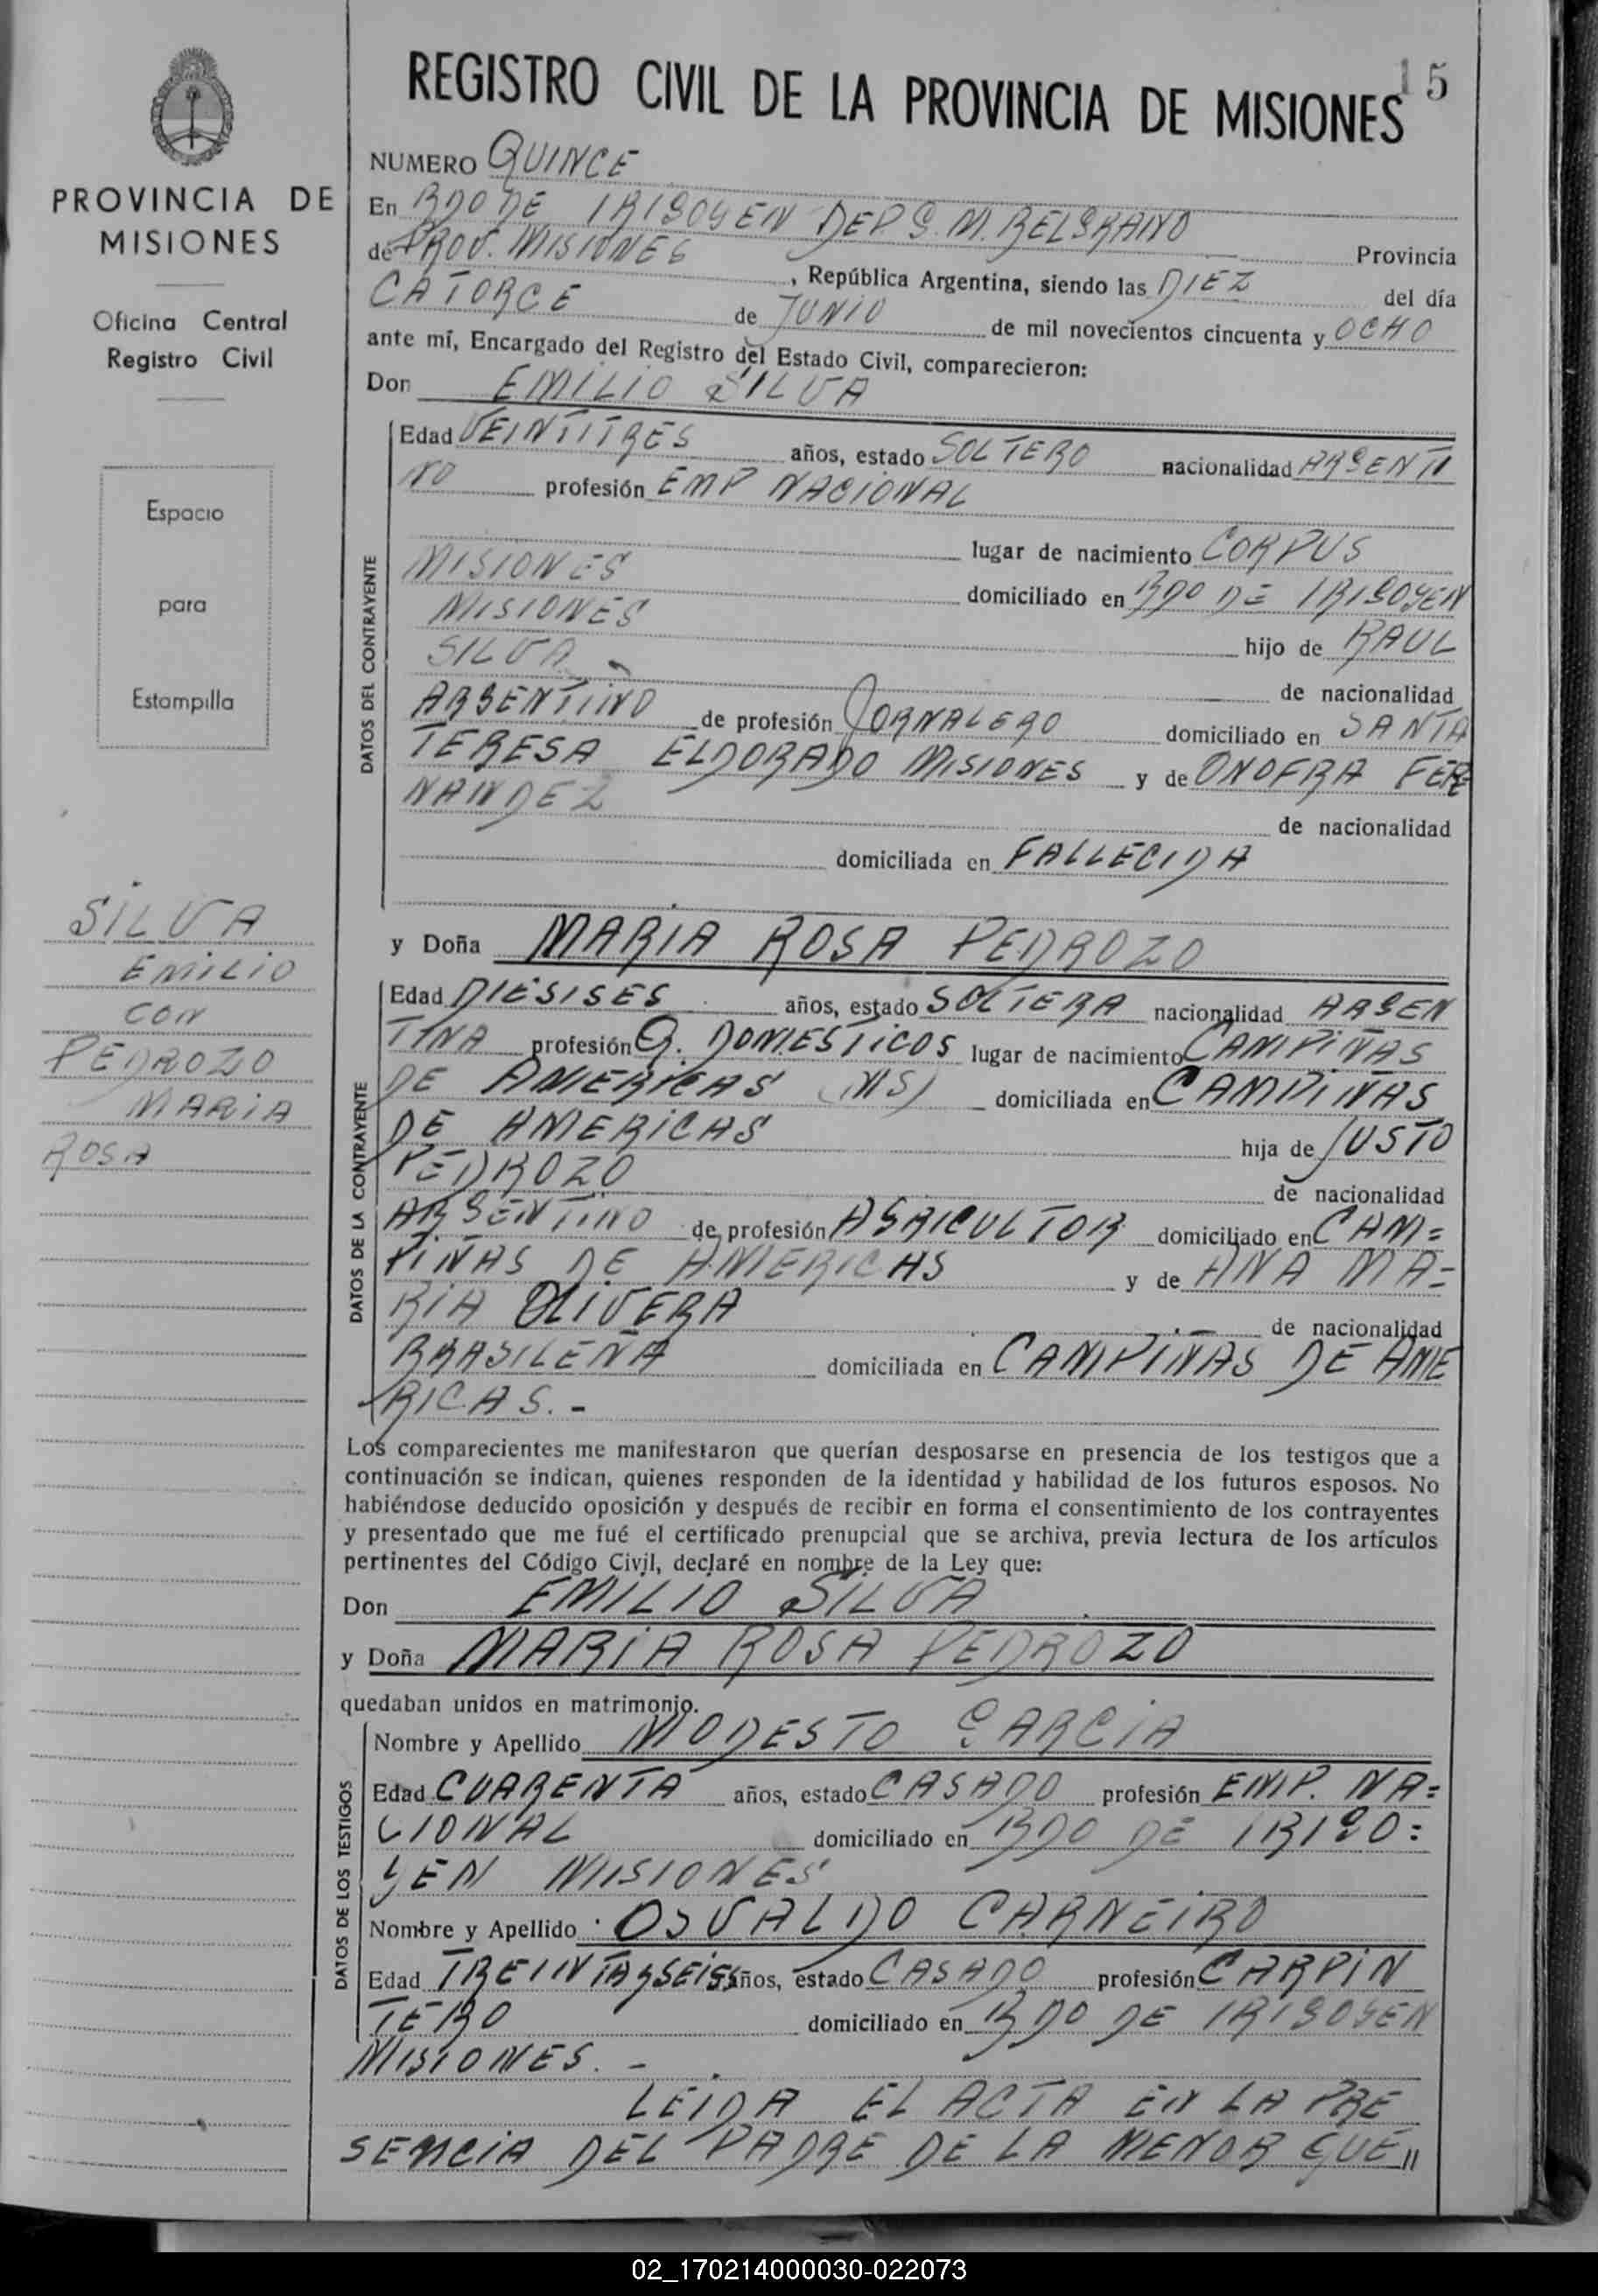 15
REGISTRO CIVIL DE LA PROVINCIA DE MISIONES
PROVINCIA DE
MISIONES
Oficina Central
Registro Civil
Espacio
para
Estampilla
SILVA
EMILIO
CON
PEDROZO
MARIA
ROSA
NUMERO QUINCE
En BDO DE IRIGOYEN DEP G. M. BELGRANO Provincia
de PROV. MISIONES, República Argentina, siendo las DIEZ del día
CATORCE de JUNIO de mil novecientos cincuenta y OCHO
ante mí, Encargado del Registro del Estado Civil, comparecieron:
Don EMILIO SILVA
DATOS DEL CONTRAYENTE
Edad VEINTITRES años, estado SOLTERO nacionalidad ARGENTI
NO profesión EMP NACIONAL
lugar de nacimiento CORPUS
MISIONES domiciliado en BDO DE IRIGOYEN
MISIONES hijo de RAUL
SILVA de nacionalidad
ARGENTINO de profesión JORNALERO domiciliado en SANTA
TERESA ELDORADO MISIONES y de ONOFRA FER=
NANDEZ de nacionalidad
domiciliada en FALLECIDA
y Doña MARIA ROSA PEDROZO
DATOS DE LA CONTRAYENTE
Edad DIESISES años, estado SOLTERA nacionalidad ARGEN
TINA profesión Q. DOMESTICOS lugar de nacimiento CAMPIÑAS
DE AMERICAS (MS) domiciliada en CAMPIÑAS
DE AMERICAS hija de JUSTO
PEDROZO de nacionalidad
ARGENTINO de profesión AGRICULTOR domiciliado en CAM=
PIÑAS DE AMERICAS y de ANA MA=
RIA OLIVERA de nacionalidad
BRASILEÑA domiciliada en CAMPIÑAS DE AME
RICAS. -
Los comparecientes me manifestaron que querían desposarse en presencia de los testigos que a
continuación se indican, quienes responden de la identidad y habilidad de los futuros esposos. No
habiéndose deducido oposición y después de recibir en forma el consentimiento de los contrayentes
y presentado que me fué el certificado prenupcial que se archiva, previa lectura de los artículos
pertinentes del Código Civil, declaré en nombre de la Ley que:
Don EMILIO SILVA
y Doña MARIA ROSA PEDROZO
quedaban unidos en matrimonio.
DATOS DE LOS TESTIGOS
Nombre y Apellido MODESTO GARCIA
Edad CUARENTA años, estado CASADO profesión EMP. NA=
CIONAL domiciliado en BDO DE IRIGO=
YEN MISIONES
Nombre y Apellido OSVALDO CARNEIRO
Edad TREINTAYSEIS años, estado CASADO profesión CARPIN
TERO domiciliado en BDO DE IRIGOYEN
MISIONES. -
LEIDA EL ACTA EN LA PRE
SENCIA DEL PADRE DE LA MENOR QUE //
02_170214000030-022073